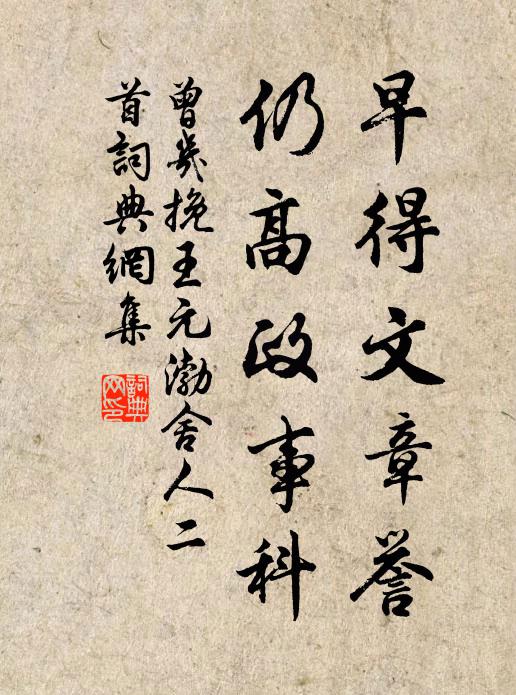 早得文章譽
仍高政事科
曾幾挽王元渤舍人二
首詞典網集
詞典网印